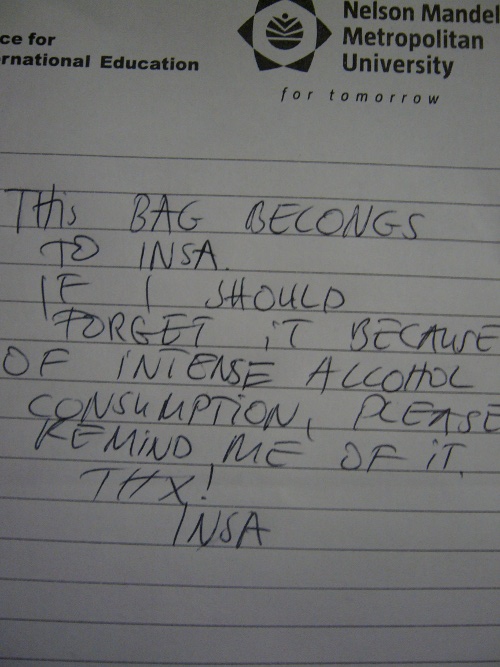 ce for
rnational Education
Nelson Mandel
Metropolitan
University
for tomorrow
THis BAG BELONGS
TO INSA.
IF I SHOULD
FORGET iT BECAUSE
OF INTENSE ALCOHOL
CONSUMPTION, PLEASE
REMIND ME OF iT.
THX!
INSA